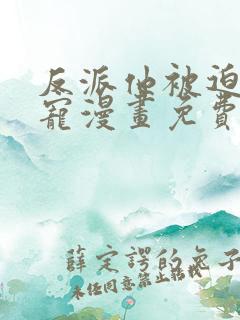 反派他被迫
寵漫畫免費
薛定諤的兔子
未经同意禁止转载